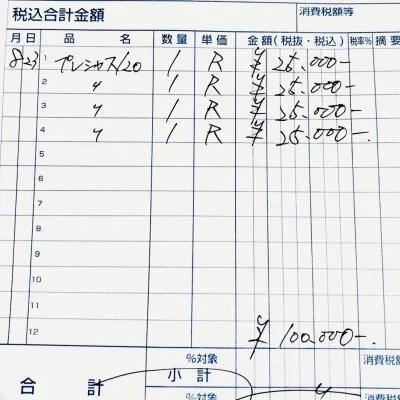 税込合計金額 消費税額等
月 日 品 名 数量 単価 金額(税抜・税込) 税率% 摘要
8 23 1 プレシャス120 1 R ¥25.000-
2 〃 1 R ¥25.000-
3 〃 1 R ¥25.000-
4 〃 1 R ¥25.000-.
5
6
7
8
9
10
11
12 ¥100.000-.
%対象 消費税額
合 計 小 計
%対象 消費税